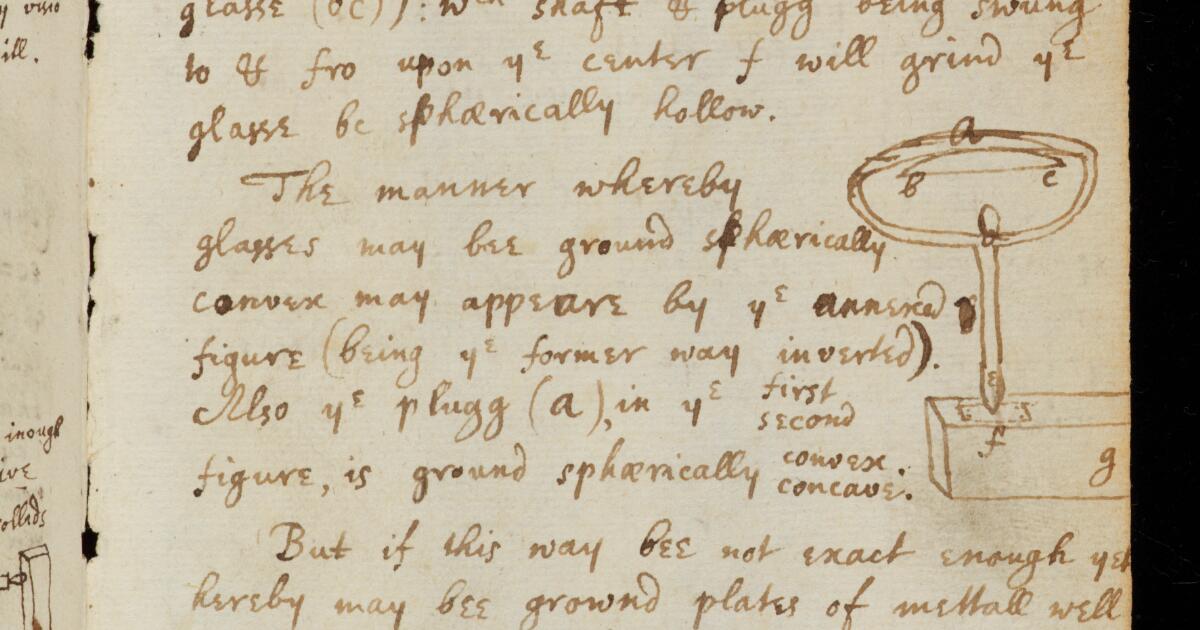 glasse (bc)): wch shaft & plugg being swung
to & fro upon ye center f will grind ye
glasse bc sphærically hollow.
The manner whereby
glasses may bee ground sphærically
convex may appeare by ye annexed
figure (being ye former way inverted).
Also ye plugg (a), in ye first
second
figure, is ground sphærically convex.
concave.
But if this way bee not exact enough yet
hereby may bee grownd plates of mettall well
a
b c
d
e
f
g
ill.
inough
ive
ollids